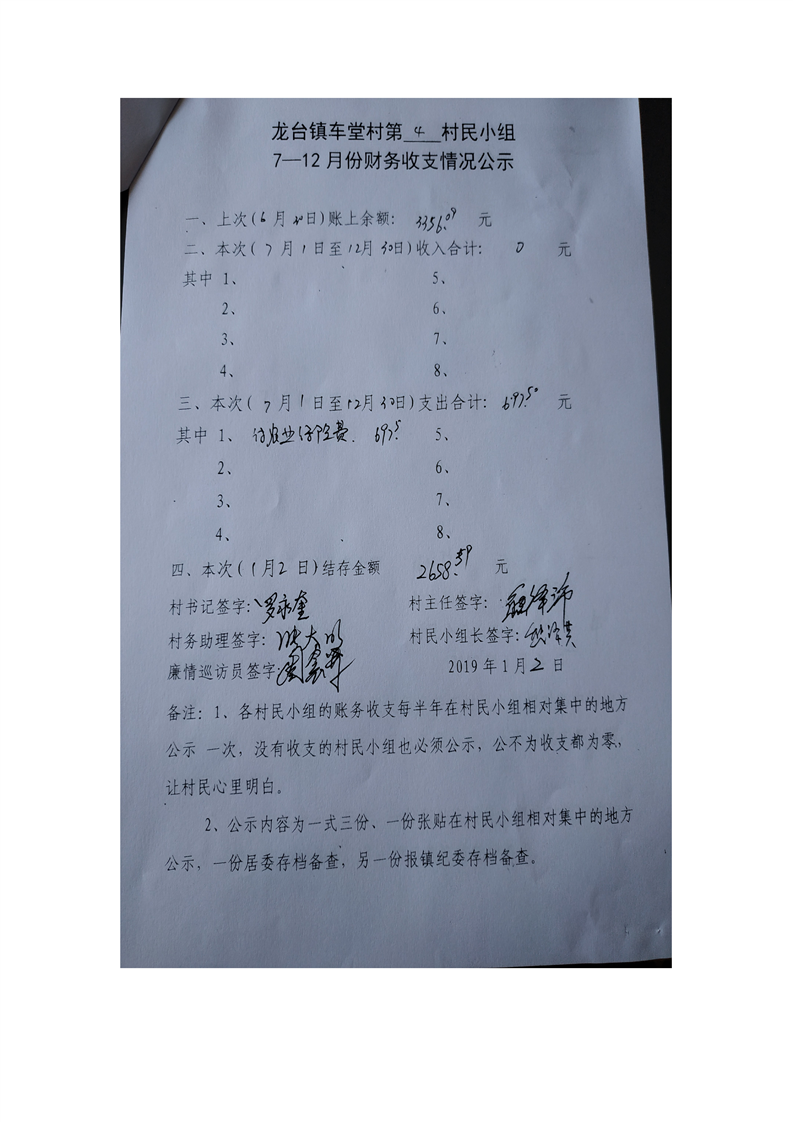 龙台镇车堂村第 4 村民小组
7—12月份财务收支情况公示
一、上次(6月30日)账上余额: 3356.09 元
二、本次(7月1日至12月30日)收入合计: 0 元
其中 1、 5、
2、 6、
3、 7、
4、 8、
三、本次(7月1日至12月30日)支出合计: 697.50 元
其中 1、付农业保险费. 697.5 5、
2、 6、
3、 7、
4、 8、
四、本次(1月2日)结存金额 2658.59 元
村书记签字: 罗永奎 村主任签字:
村务助理签字: 张大明 村民小组长签字:
廉情巡访员签字: 2019年1月2日
备注: 1、各村民小组的账务收支每半年在村民小组相对集中的地方
公示 一次, 没有收支的村民小组也必须公示, 公不为收支都为零,
让村民心里明白。
2、公示内容为一式三份、一份张贴在村民小组相对集中的地方
公示, 一份居委存档备查, 另一份报镇纪委存档备查。